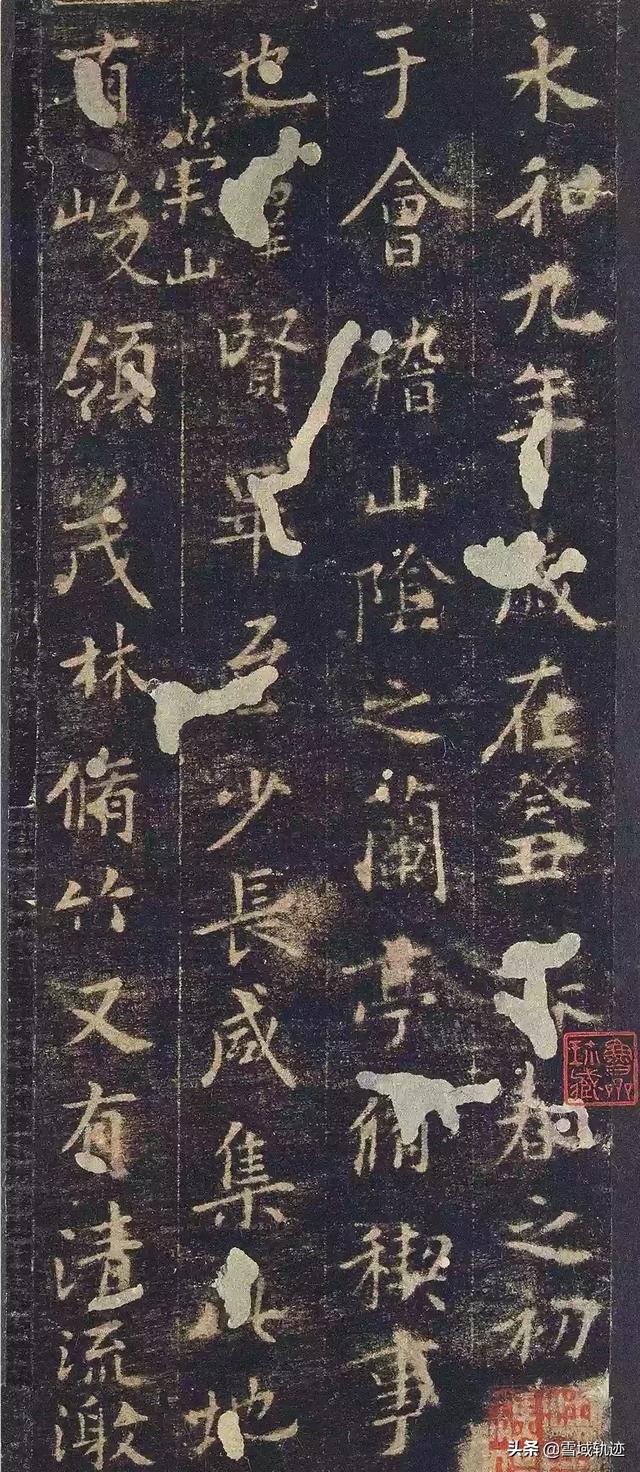 永和九年歲在癸丑春之初
于會稽山陰之蘭亭脩禊事
也羣賢畢至少長咸集此地
崇山
有峻領茂林脩竹又有清流激
头条@雪域轨迹